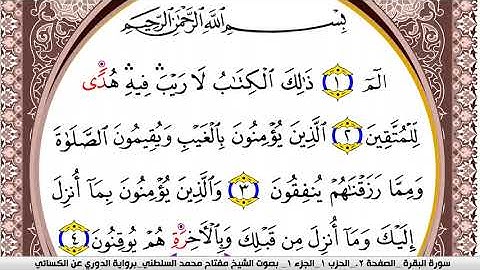 بِسْمِ اللَّهِ الرَّحْمَٰنِ الرَّحِيمِ
الٓمٓ ١ ذَٰلِكَ الْكِتَابُ لَا رَيْبَ ۛ فِيهِ ۛ هُدًى
لِّلْمُتَّقِينَ ٢ الَّذِينَ يُؤْمِنُونَ بِالْغَيْبِ وَيُقِيمُونَ الصَّلَوٰةَ
وَمِمَّا رَزَقْنَٰهُمْ يُنفِقُونَ ٣ وَالَّذِينَ يُؤْمِنُونَ بِمَا أُنزِلَ
إِلَيْكَ وَمَا أُنزِلَ مِن قَبْلِكَ وَبِالْأَخِرَةِ هُمْ يُوقِنُونَ ٤
سورة البقرة_ الصفحة ٢_ الحزب ١_ الجزء ١_ بصوت الشيخ مفتاح محمد السلطني_برواية الدوري عن الكسائي